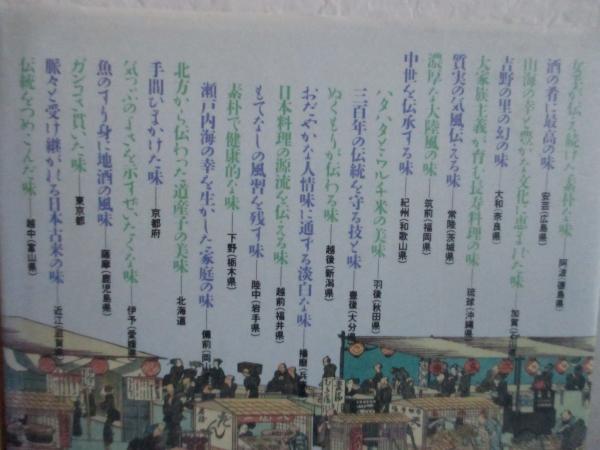 女系が伝え続けた素朴な味――阿波(徳島県)
酒の肴に最高の味――安芸(広島県)
山海の幸と豊かな文化に恵まれた味――加賀(石川県)
吉野の里の幻の味――大和(奈良県)
大家族主義が育む長寿料理の味――琉球(沖縄県)
質実の気風伝える味――常陸(茨城県)
濃厚な大陸風の味――筑前(福岡県)
中世を伝承する味――紀州(和歌山県)
ハタハタとワルチ米の美味――羽後(秋田県)
三百年の伝統を守る技と味――豊後(大分県
ぬくもりが伝わる味――越後(新潟県)
おだやかな人情味に通ずる淡白な味――播磨(兵
日本料理の源流を伝える味――越前(福井県)
もてなしの風習を残す味――陸中(岩手県)
素朴で健康的な味――下野(栃木県)
瀬戸内海の幸を生かした家庭の味――備前(岡山
北方から伝わった道産子の美味――北海道
手間ひまかけた味――京都府
気っぷのよさを示すぜいたくな味――伊予(愛媛県
魚のすり身に地酒の風味――薩摩(鹿児島県)
ガンコさ貫いた味――東京都
脈々と受け継がれる日本古来の味――近江(滋賀県
伝統をつめこんだ味――越中(富山県)